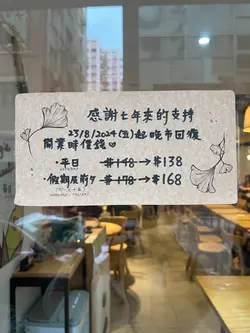 感謝七年來的支持
23/8/2024(五)起晚市回復
開業時價錢♡
·平日 $148→$138
·假期及前夕 $178→$168